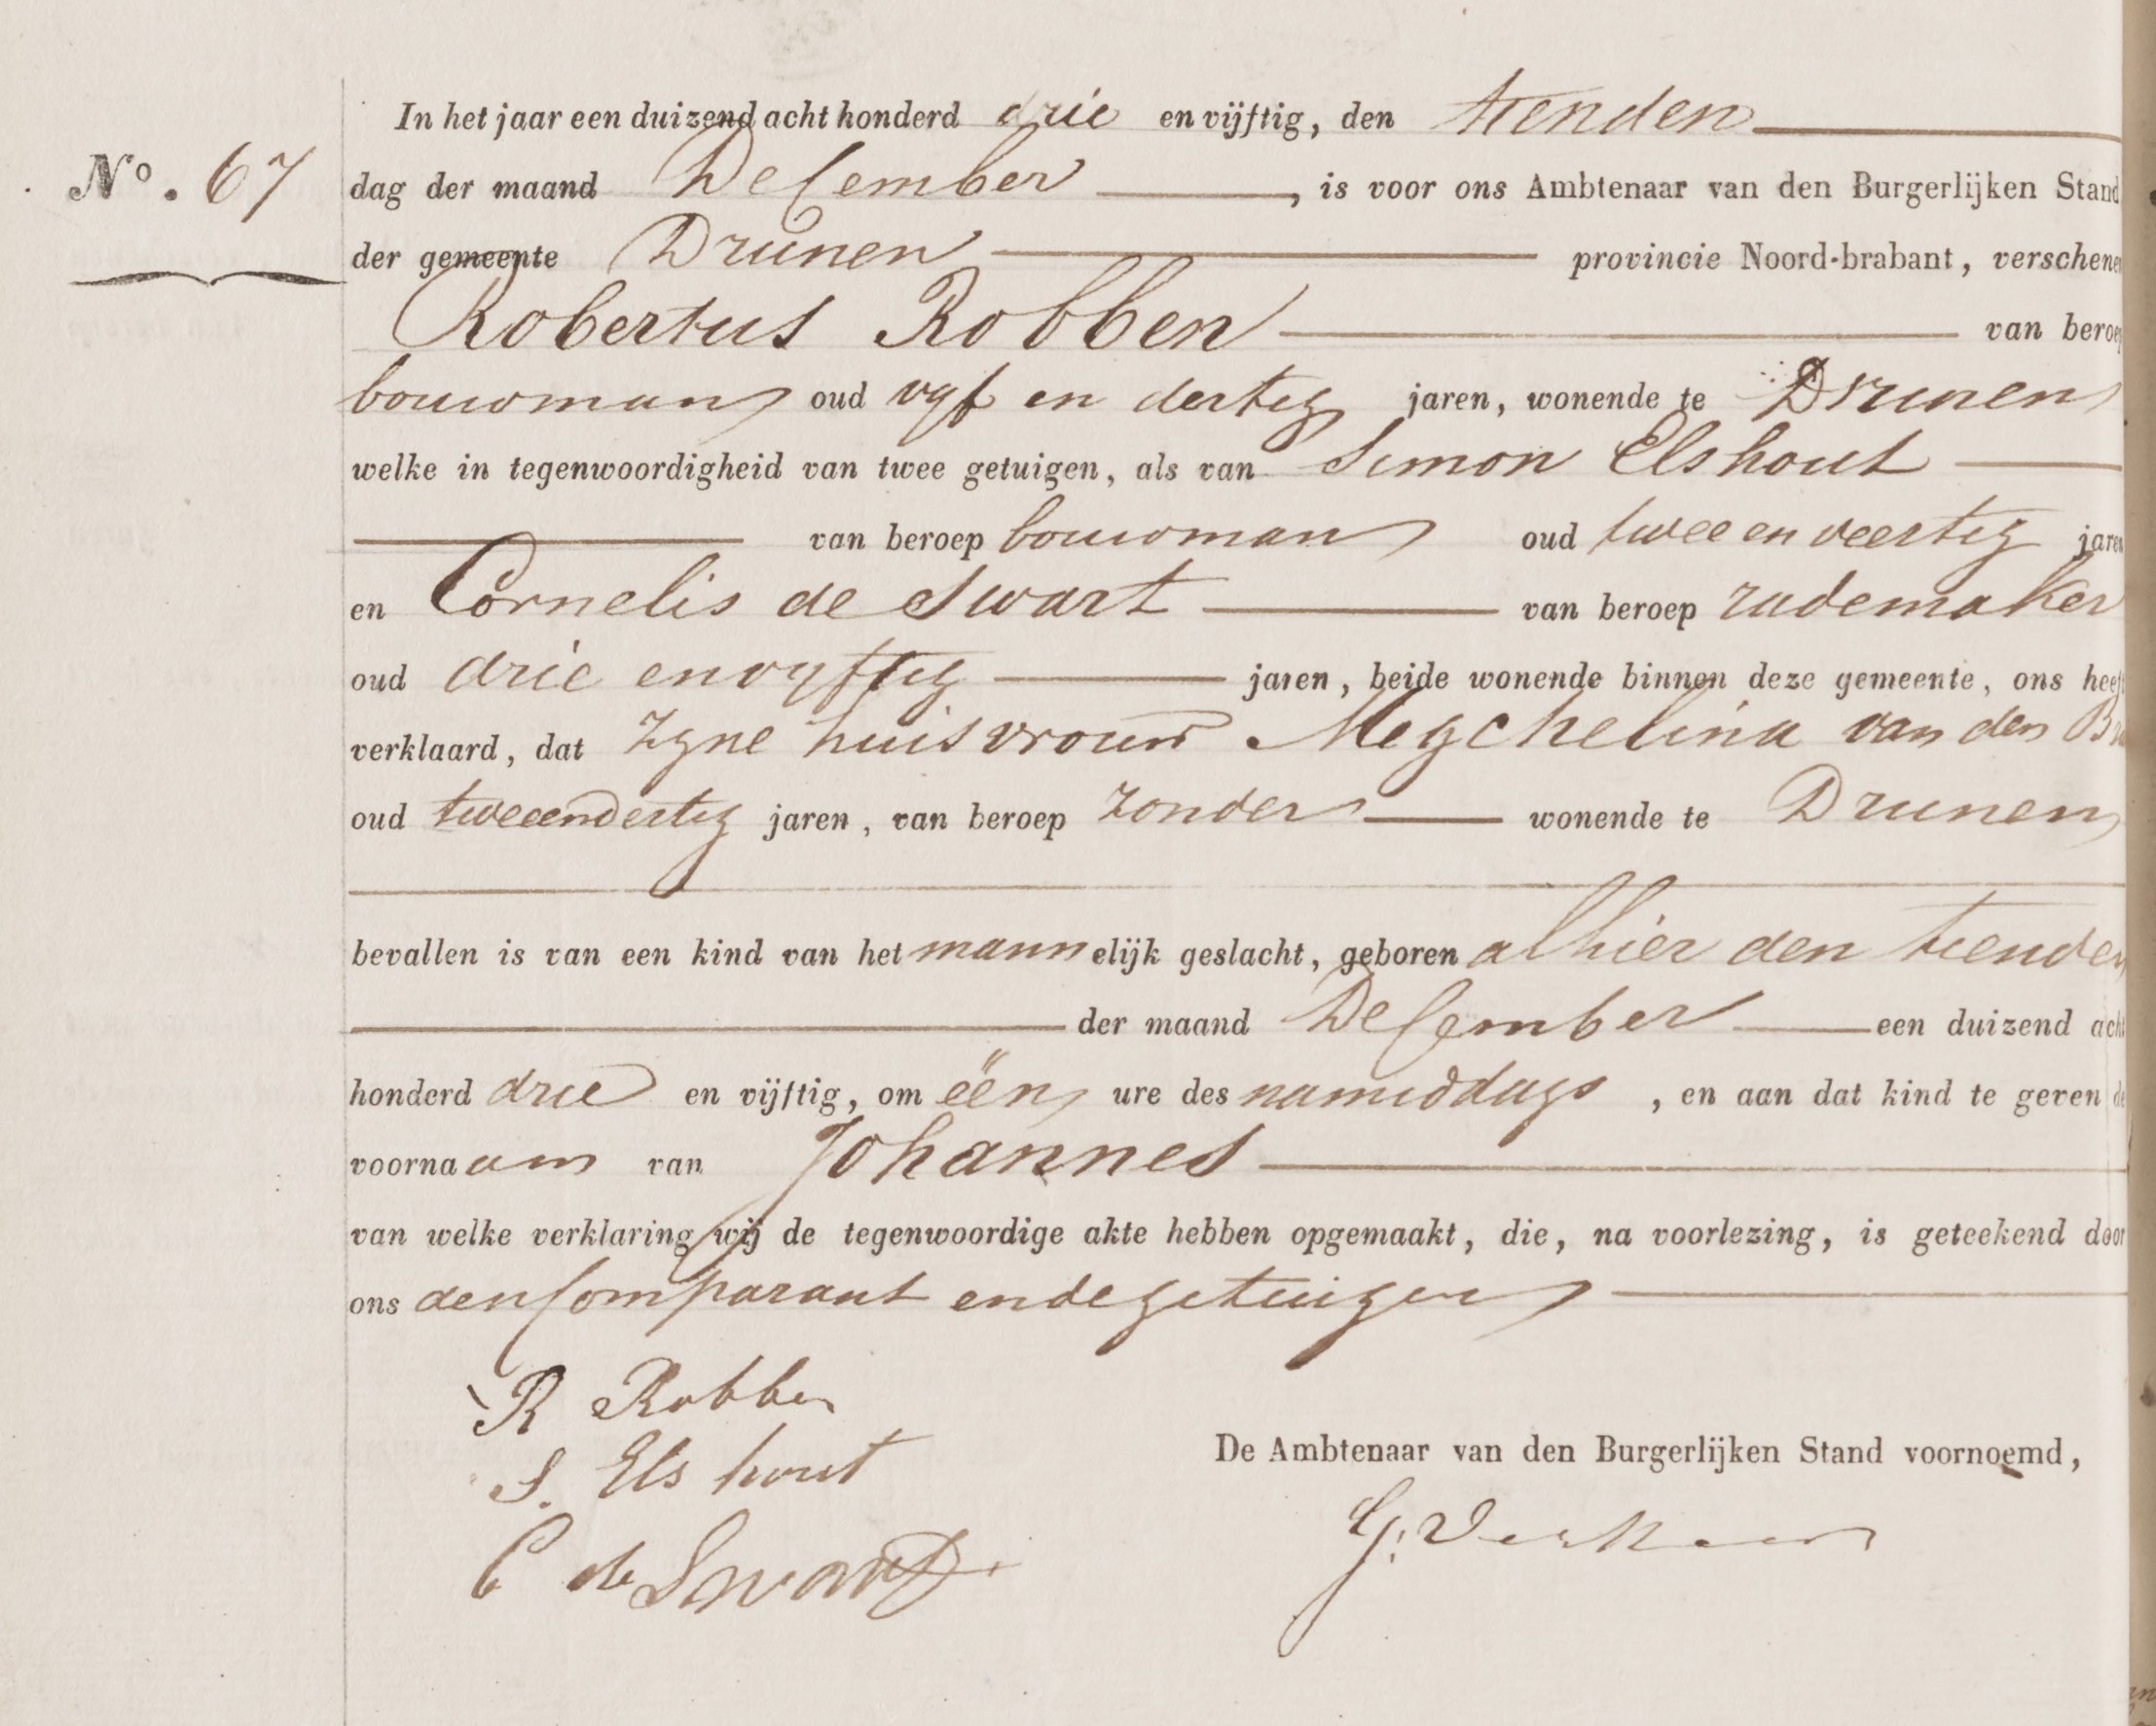 In het jaar een duizend acht honderd drie en vijftig, den tienden
No. 67
dag der maand December, is voor ons Ambtenaar van den Burgerlijken Stand
der gemeente Drunen provincie Noord-brabant, verschenen
Robertus Robben van beroep
bouwman oud vyf en dertig jaren, wonende te Drunen
welke in tegenwoordigheid van twee getuigen, als van Simon Elshout
van beroep bouwman oud twee en veertig jaren
en Cornelis de Swart van beroep rademaker
oud drie en vyftig jaren, beide wonende binnen deze gemeente, ons heeft
verklaard, dat zyne huisvrouw Megchelina van den
oud tweeendertig jaren, van beroep zonder wonende te Drunen
bevallen is van een kind van het mannelijk geslacht, geboren alhier den tienden
der maand December een duizend acht
honderd drie en vijftig, om één ure des namiddags, en aan dat kind te geven de
voornaam van Johannes
van welke verklaring wij de tegenwoordige akte hebben opgemaakt, die, na voorlezing, is geteekend door
ons den Comparant en de getuigen
R Robben
S. Elshout
De Ambtenaar van den Burgerlijken Stand voornoemd,
C de Swart
G.